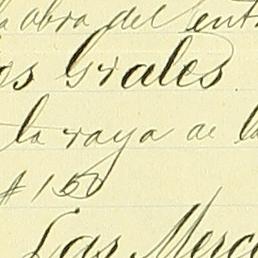 la obra del Cent
os Grales
la raya de l
# 150
Las Merce